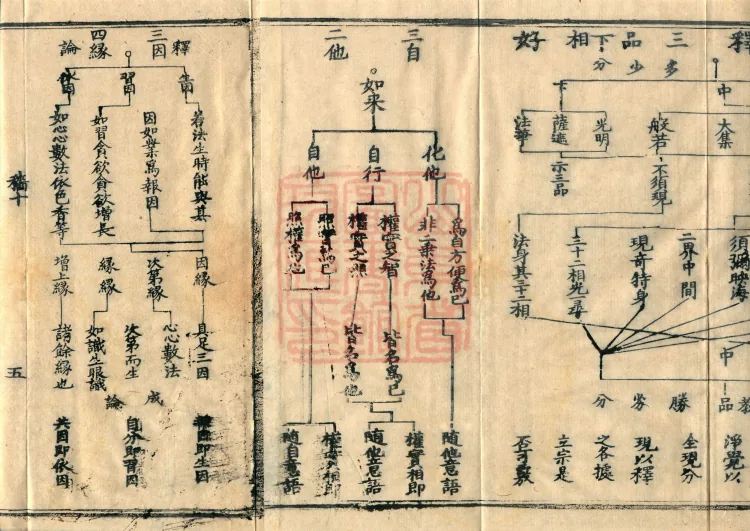 釋
三多
品少
下分
相
好
中
下
大集
般若
不須現
光明
薩遮
法華
示三品
須彌映海
二界中間
現奇特身
三十二相光一尋
法身具三十二相
中
品
勝
劣
分
淨覺以
全現分
現以釋
之各據
立宗是
否可數
三自
二他
如来
化他
自行
自他
為自方便為己
非二乗法為他
權實之智
權實之照
照實為己
照權為他
皆名為己
皆名為他
隨他意語
權實相即
隨他意語
權實相即
隨自意語
釋
三因
四縁
論
生因
習因
依因
若法生時能與其
因如業為報因
如習貪欲貪欲增長
如心心數法依色香等
因縁
次第縁
縁縁
增上縁
具足三因
心心數法
次第而生
如識生眼識
諸餘縁也
成
論
即生因
自分即習因
共因即依因
五